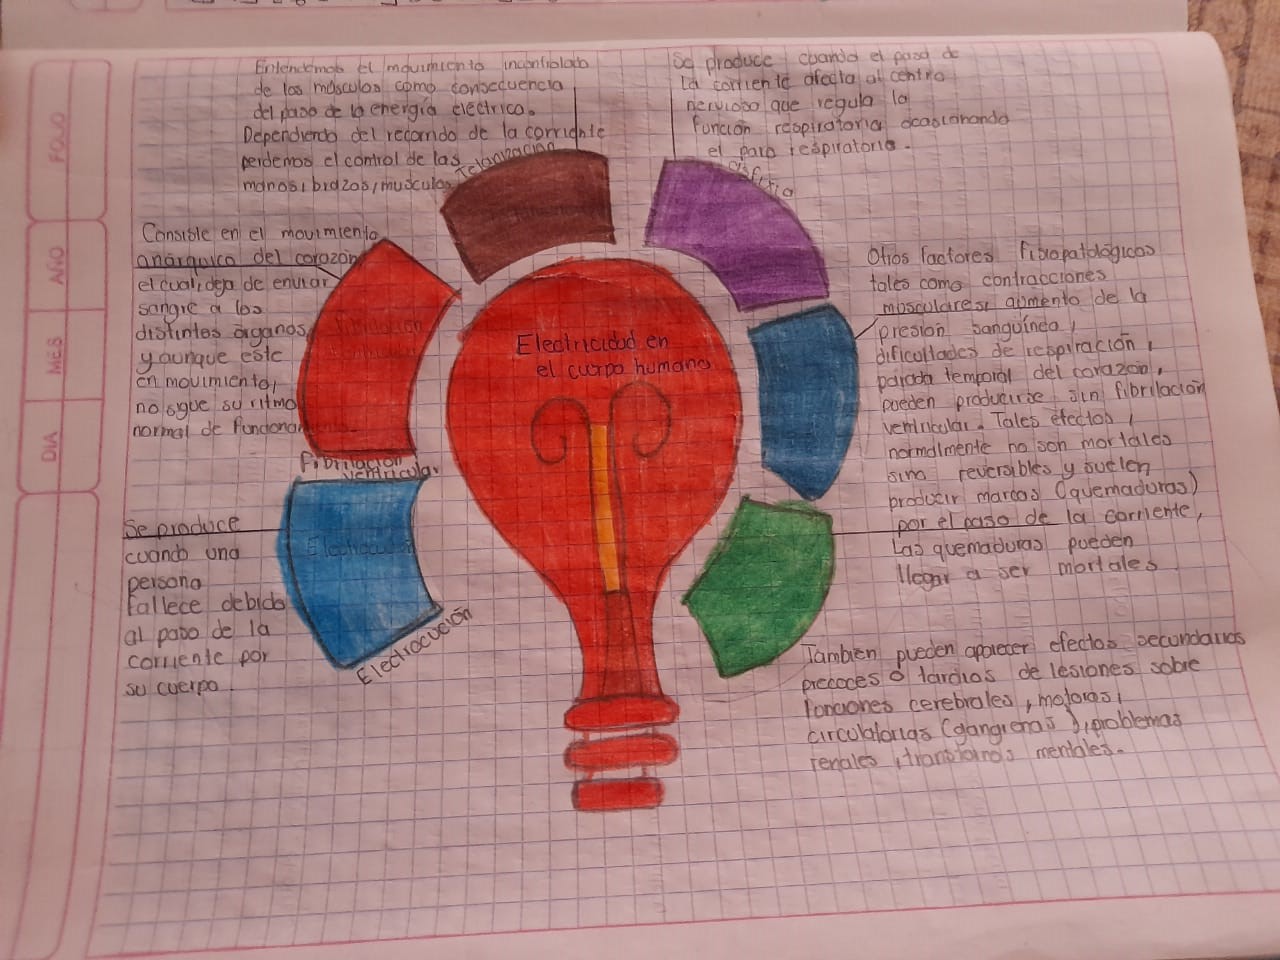 FOLIO
AÑO
MES
DIA
Entendemos el movimiento incontrolado
de los músculos como consecuencia
del paso de la energía eléctrica.
Dependiendo del recorrido de la corriente
perdemos el control de las
manos, brazos, musculos
Tetanización
Se produce cuando el paso de
la corriente afecta al centro
nervioso que regula la
función respiratoria ocasionando
el paro respiratorio.
Asfixia
Consible en el movimiento
anárquico del corazón
el cual, deja de enviar
sangre a los
distintos órganos
y aunque este
en movimiento,
no sigue su ritmo
normal de funcionamiento.
Fibrilación
ventricular
Fibrilación
ventricular.
Electricidad en
el cuerpo humano
Otros factores fisiopatológicos
tales como contracciones
musculares, aumento de la
presión sanguínea,
dificultades de respiración,
parada temporal del corazón,
pueden producirse sin fibrilación
ventricular. Tales efectos,
normalmente no son mortales
sino reversibles y suelen
producir marcas (quemaduras)
por el paso de la corriente,
Las quemaduras pueden
llegar a ser mortales
Se produce
cuando una
persona
fallece debido
al paso de la
corriente por
su cuerpo.
Electrocución
Electrocución
También pueden aparecer efectos secundarios
precoces o tardios de lesiones sobre
funciones cerebrales, motoras,
circulatorias (gangrenas), problemas
renales, transtornos mentales.